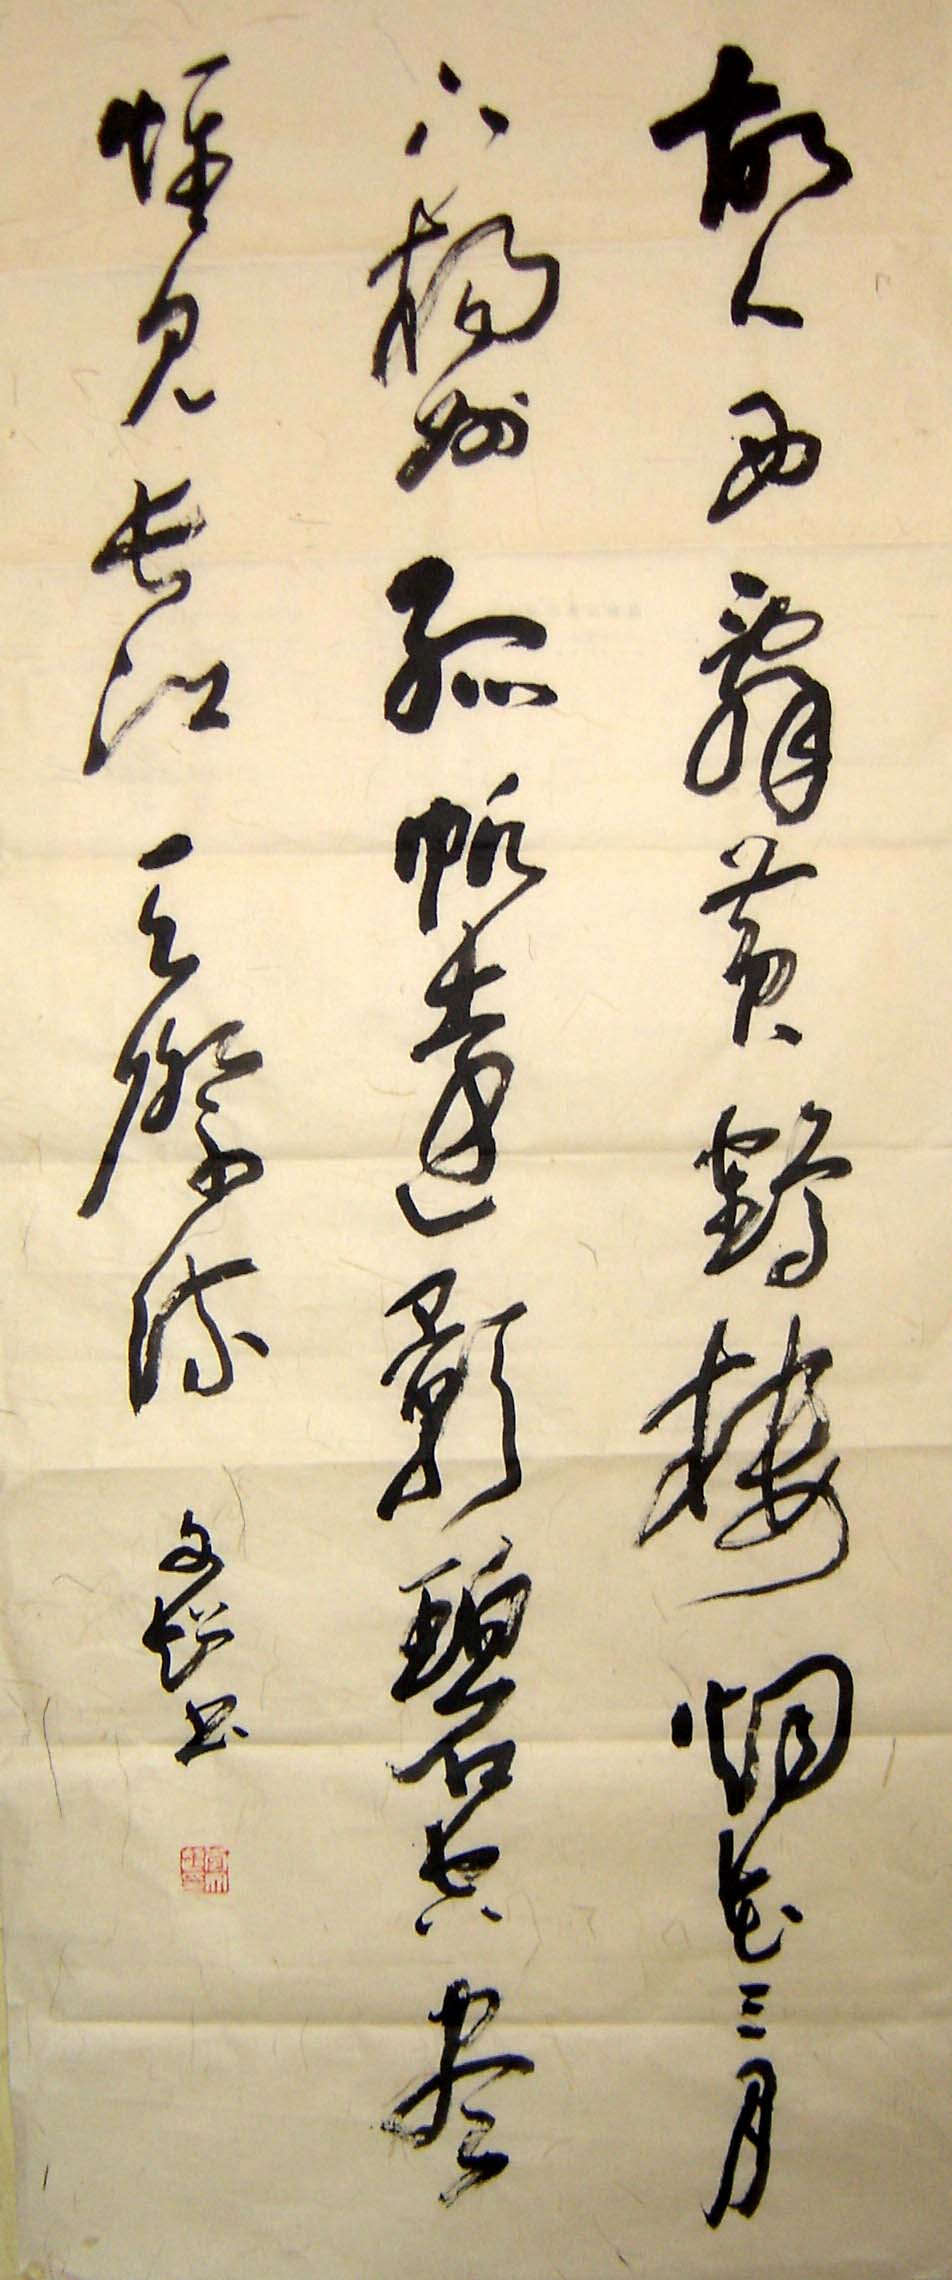 故人西辭黄鶴樓烟花三月
下揚州孤帆遠影碧空盡
惟見長江天際流
書